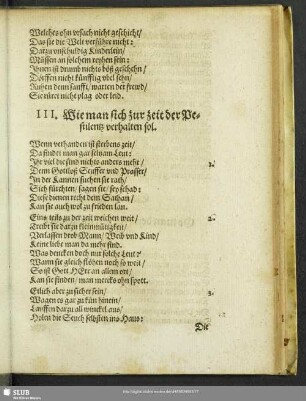 Welches ohn vrsach nicht geschicht/
Das sie die Welt verführe nicht:
Darzu vnschuldig Kinderlein/
Müssen an solchem reyhen sein:
Ihnen ist drumb nichts böß geschehn/
Dörffen nicht künfftig vbel sehn/
Ruhen denn sanfft/ warten der freud/
Sie rüret nicht plag oder leid.
III. Wie man sich zur zeit der Pe-
stilentz verhalten sol.
Wenn verhanden ist sterbens zeit/
Da findet man gar seltzam Leut:
Ihr viel die sind nichts anders mehr/ 1.
Denn Gottloß Seuffer vnd Prasser/
In der Kannen suchen sie rath/
Sich fürchten/ sagen sie/ sey schad:
Diese dienen recht dem Sathan/
Kan sie auch wol zu frieden lan.
Eins teils zu der zeit weichen weit/ 2.
Treibt sie darzu kleinmütigkeit/
Verlassen drob Mann/ Weib vnd Kind/
Keine lieb man da mehr find.
Was dencken doch nur solche Leut?
Wann sie gleich flöhen noch so weit/
So ist Gott HErr an allem ort/
Kan sie finden/ man mercks ohn spott.
Etlich aber zu sicher sein/ 3.
Wagen es gar zu kün hinein/
Lauffen darzu all winckel aus/
Holen die Seuch selbsten ins Haus:
Die
SLUB
Wir führen Wissen.